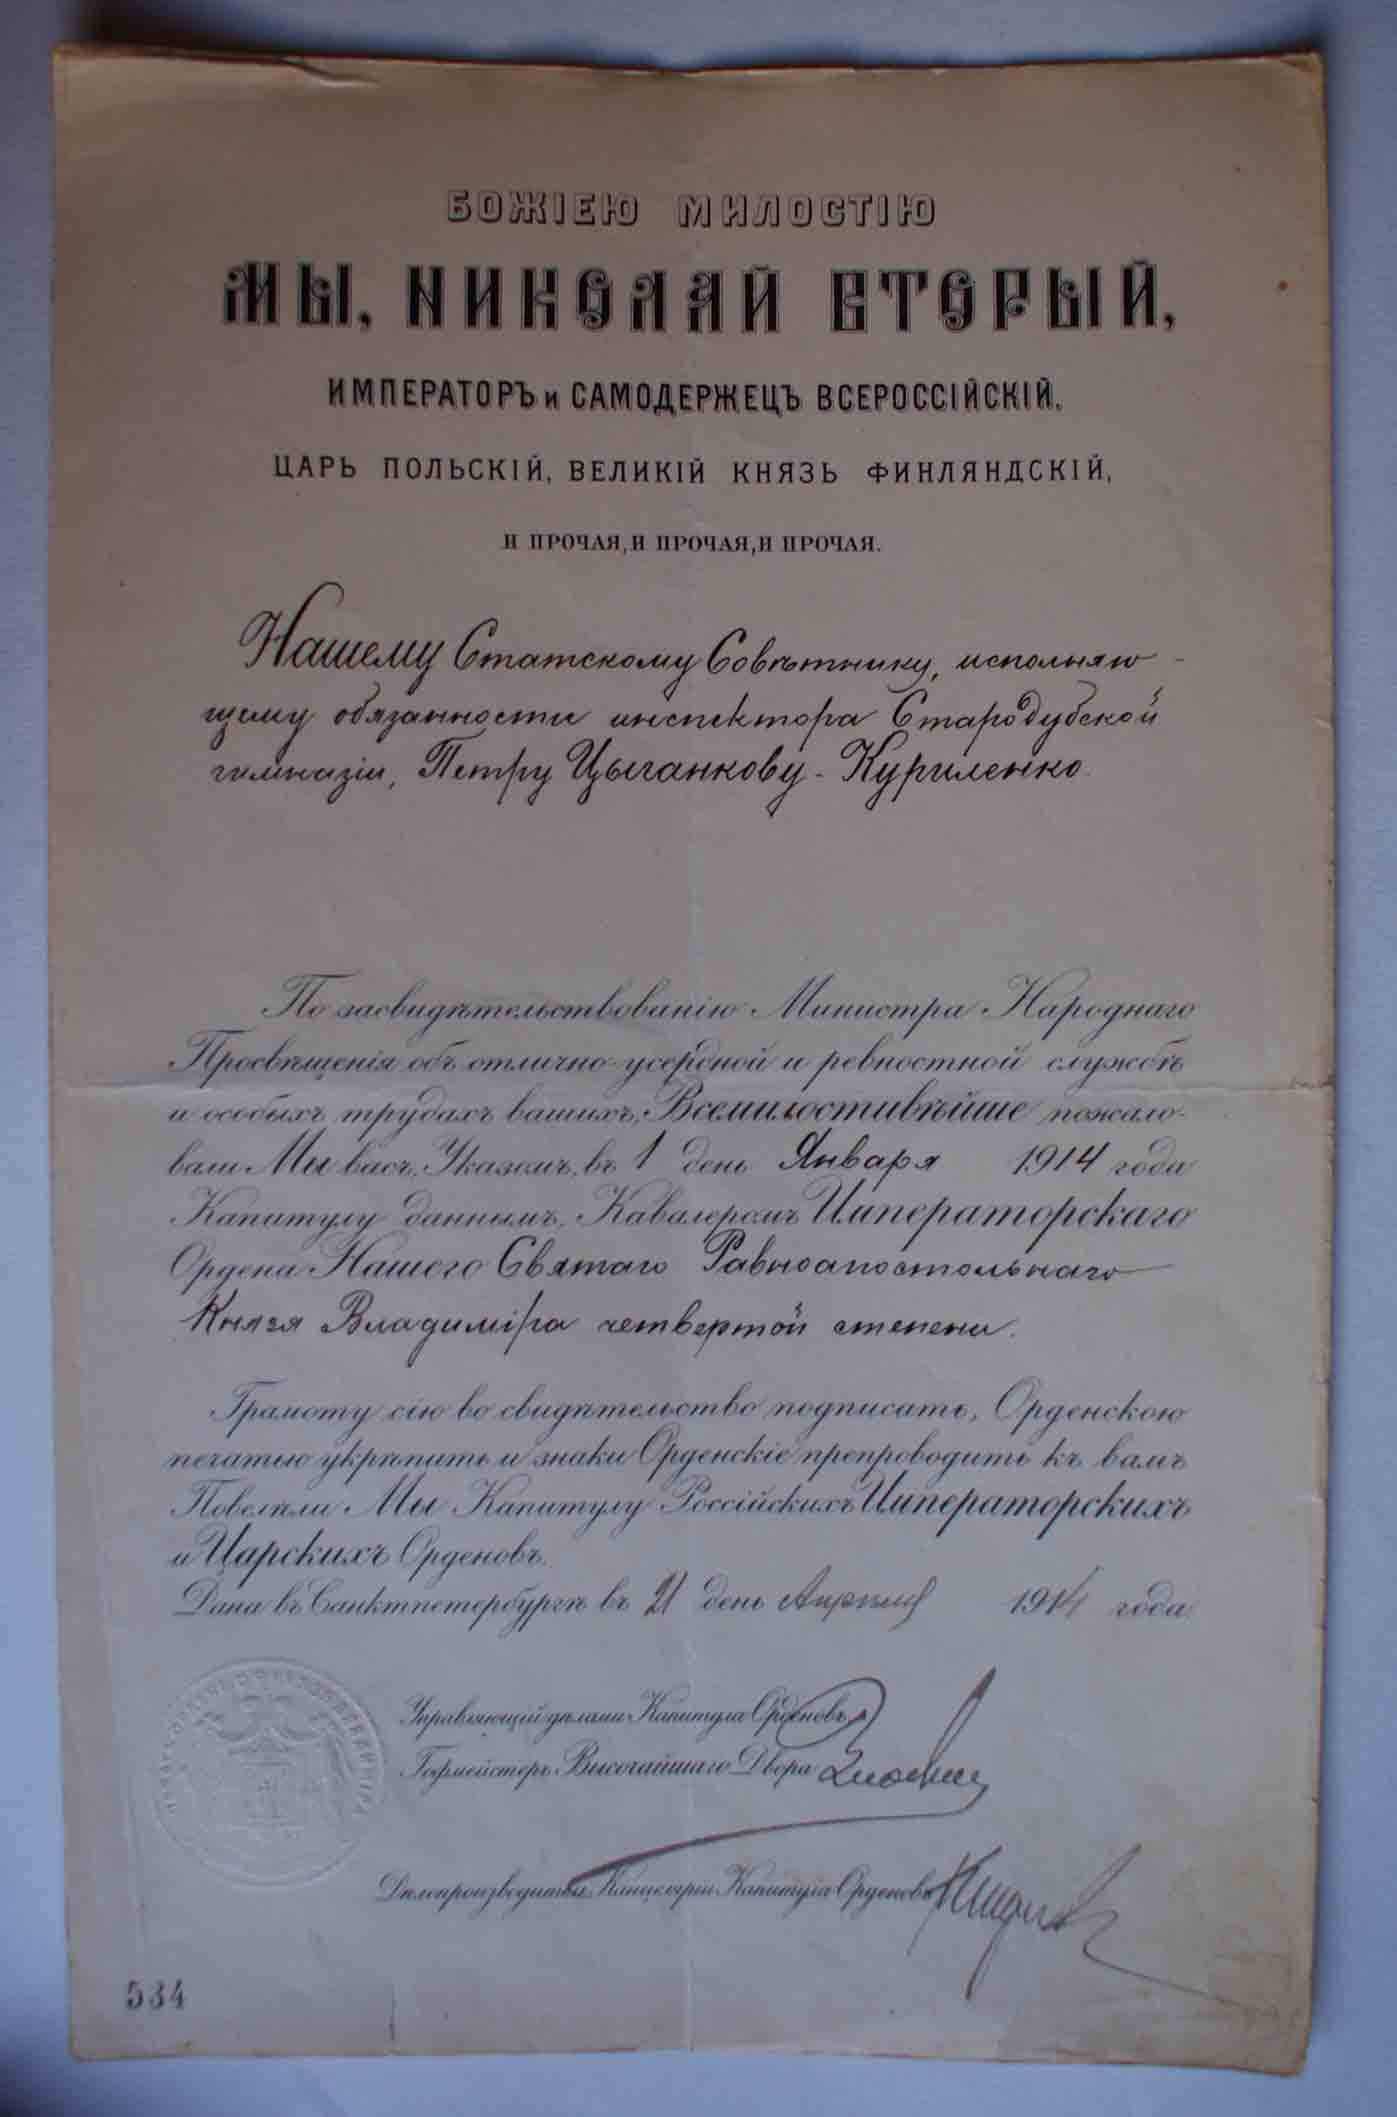 БОЖІЕЮ МИЛОСТІЮ
МЫ, НИКОЛАЙ ВТОРЫЙ,
ИМПЕРАТОРЪ и САМОДЕРЖЕЦЪ ВСЕРОССІЙСКІЙ,
ЦАРЬ ПОЛЬСКІЙ, ВЕЛИКІЙ КНЯЗЬ ФИНЛЯНДСКІЙ,
И ПРОЧАЯ, И ПРОЧАЯ, И ПРОЧАЯ.
Нашему Статскому Совѣтнику, исполняю-
щему обязанности инспектора Стародубской
гимназіи, Петру Цыганкову-Куриленко.
По засвидѣтельствованію Министра Народнаго
Просвѣщенія объ отлично-усердной и ревностной службѣ
и особыхъ трудахъ вашихъ, Всемилостивѣйше пожало-
вали Мы васъ, Указомъ, въ 1 день Января 1914 года
Капитулу даннымъ, Кавалеромъ Императорскаго
Ордена Нашего Святаго Равноапостольнаго
Князя Владиміра четвертой степени.
Грамоту сію во свидѣтельство подписать, Орденскою
печатью укрѣпить и знаки Орденскіе препроводить къ вамъ
Повелѣли Мы Капитулу Россійскихъ Императорскихъ
и Царскихъ Орденовъ.
Дана въ Санктпетербургѣ въ 21 день Апрѣля 1914 года
Управляющій дѣлами Капитула Орденовъ,
Гофмейстеръ Высочайшаго Двора
Дѣлопроизводитель Канцеляріи Капитула Орденовъ
534